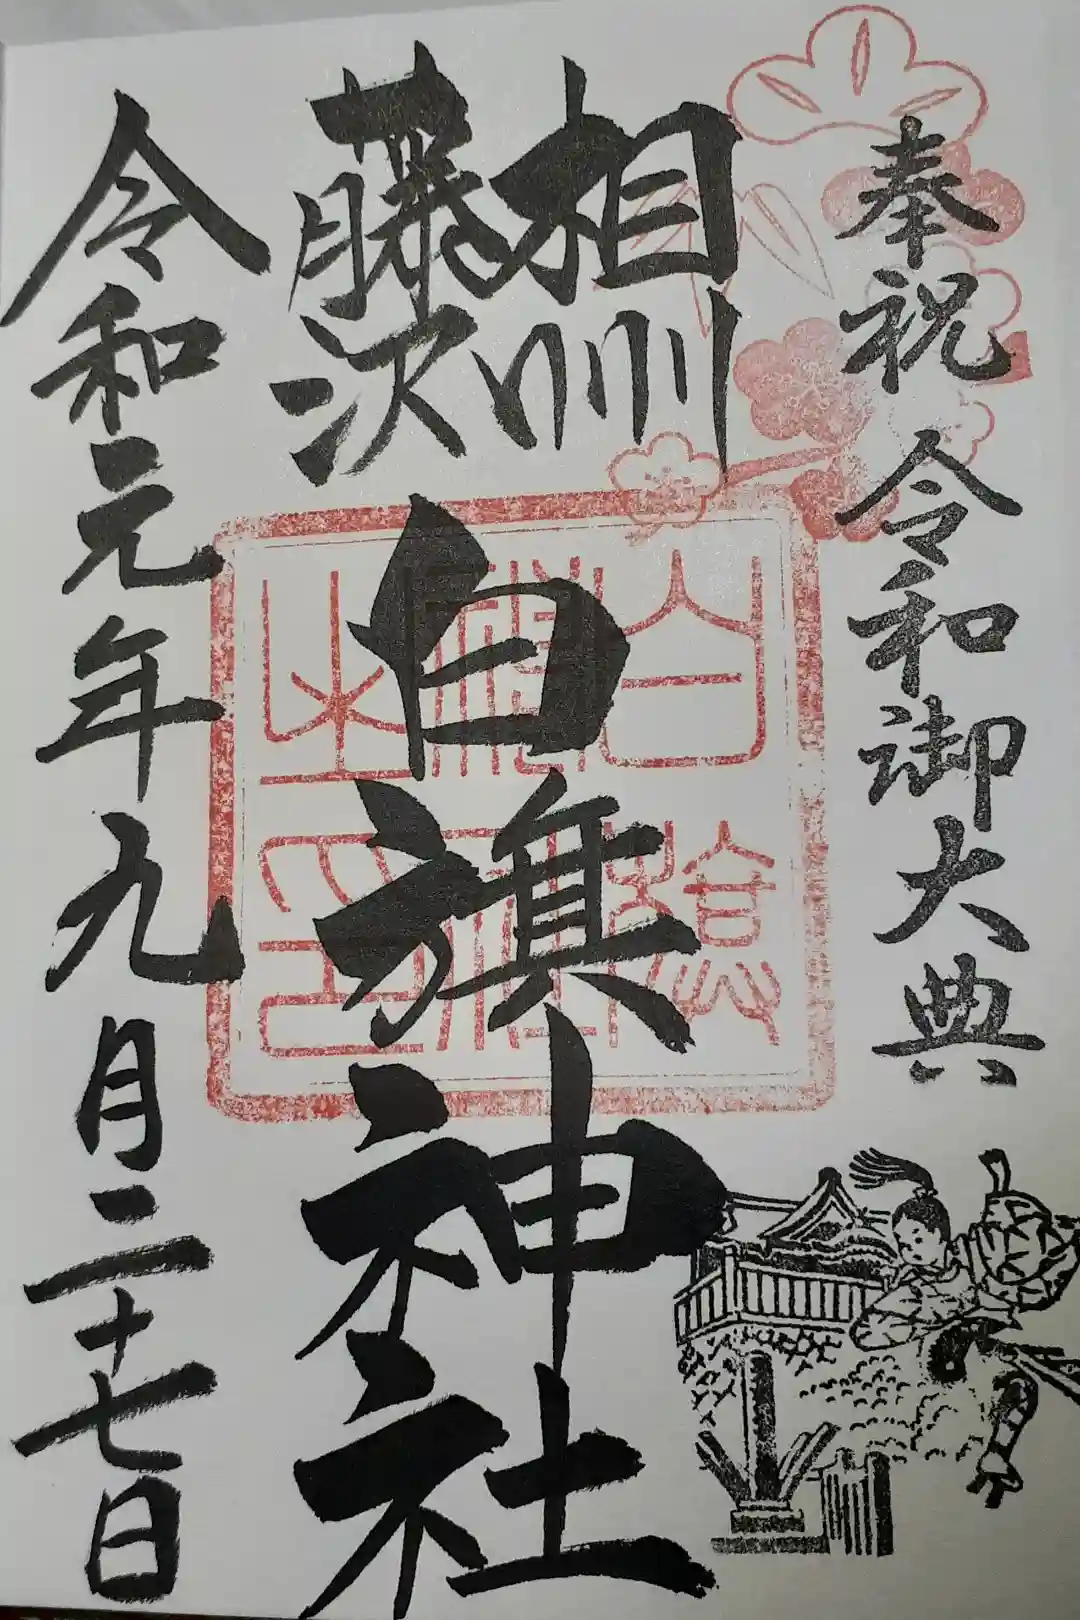 奉祝 令和御大典
相州
藤沢
白旗神社
令和元年九月二十七日
白旗
神社
之印